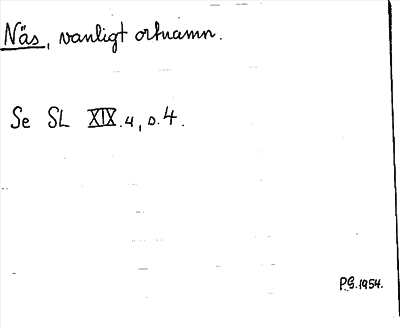 Näs, vanligt ortnamn.
Se SL XIX.4, s.4.
P.G.1954.